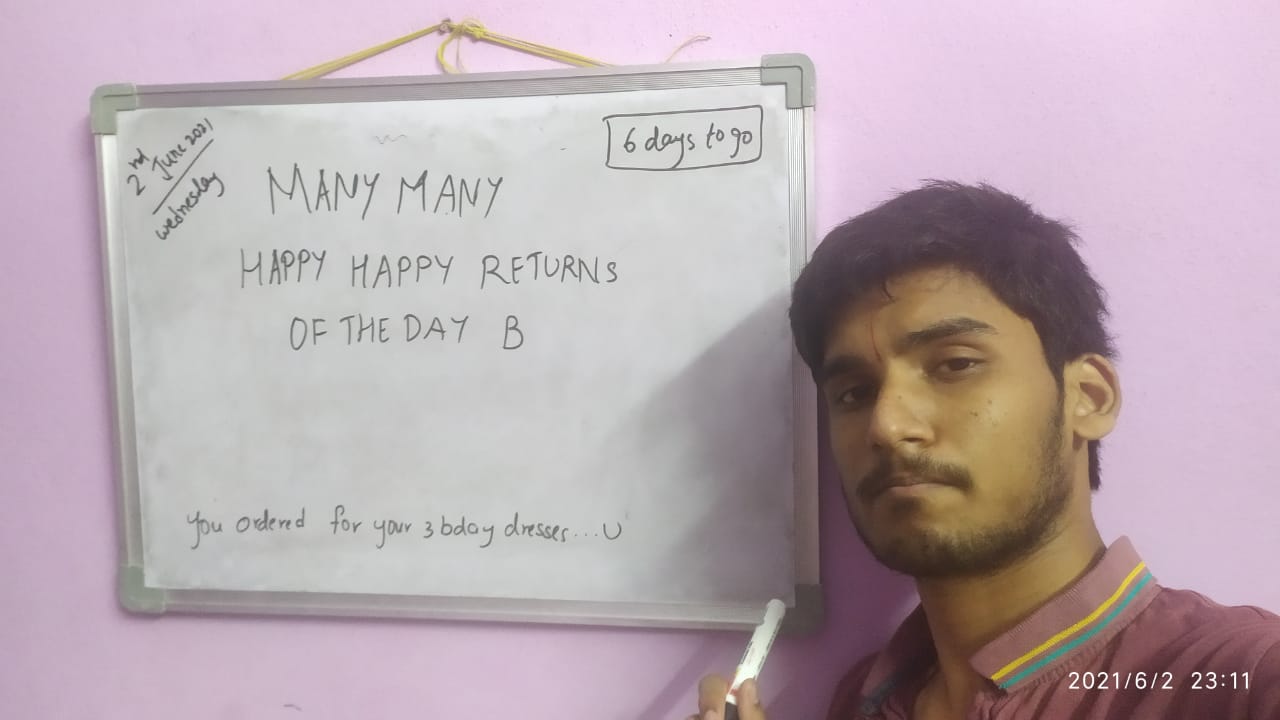 2nd June 2021
wednesday
6 days to go
MANY MANY
HAPPY HAPPY RETURNS
OF THE DAY B
you ordered for your 3 bday dresses...U
2021/6/2 23:11